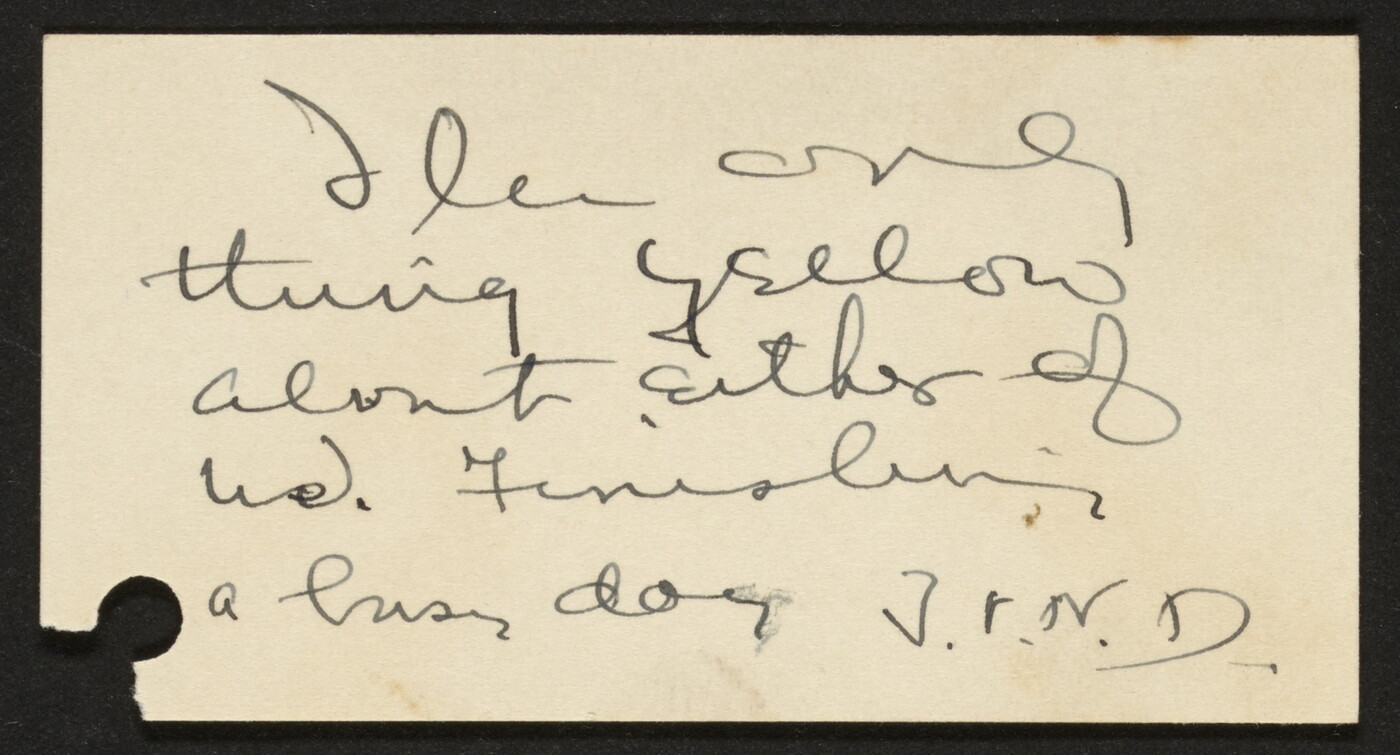 The only
thing yellow
about either of
us. Finishing
a busy day J.I.N.D.